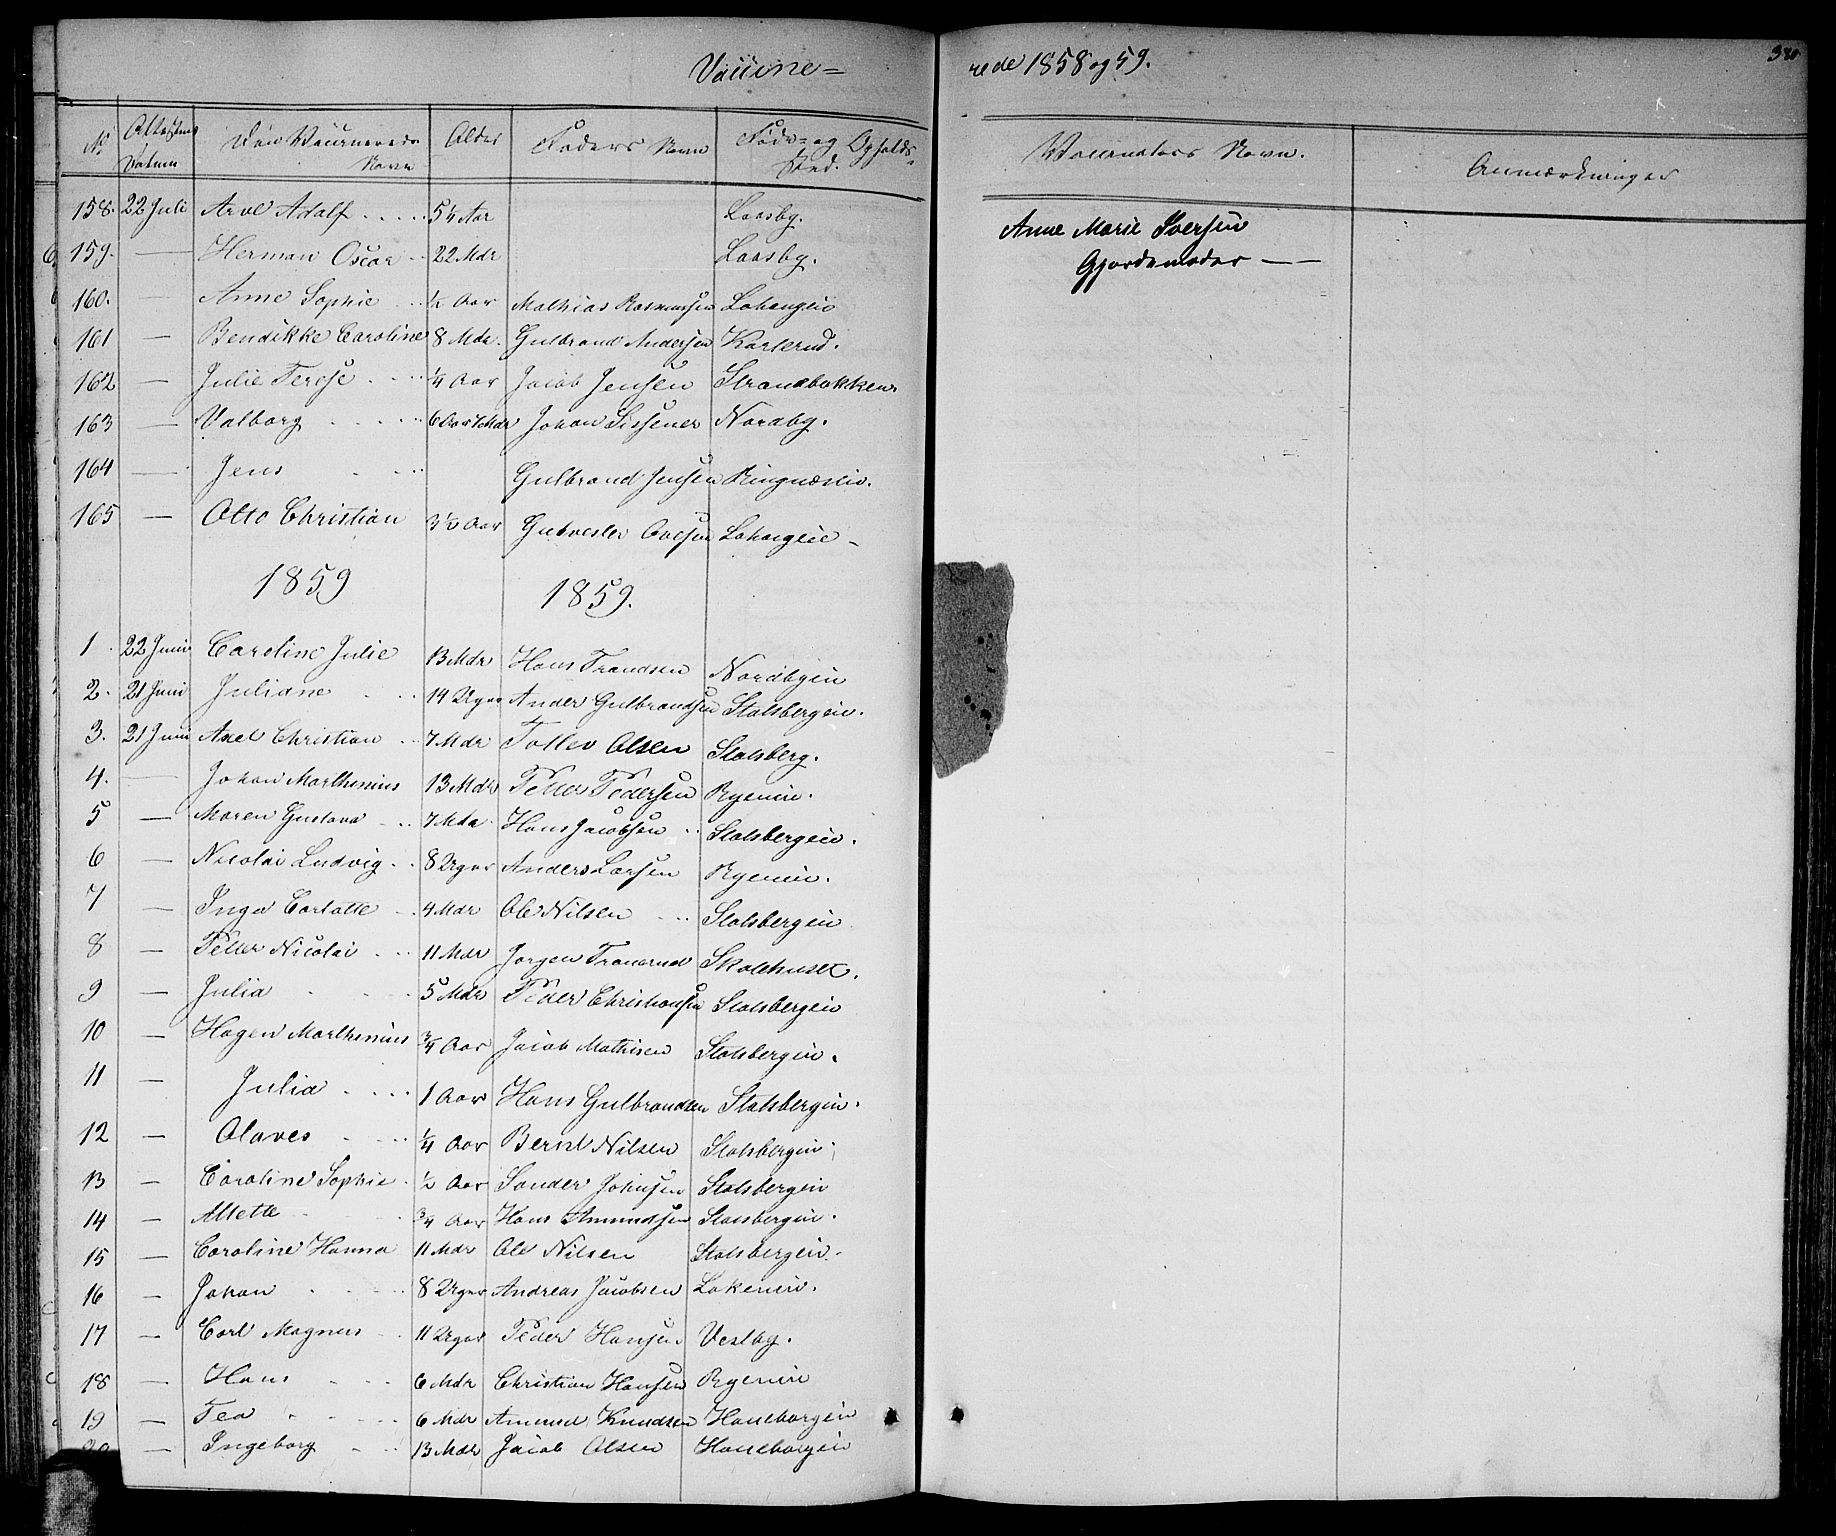 Vaccine= rede 1858 og 59.
No Attestens Datum Den Vaccineredes Navn Alder Faders Navn Føde- og Opholds-Sted. Vaccinators Navn. Anmærkninger
158. 22 Juli Arve Adolf 5¼ Aar Laasby. Anne Marie Iversen
159. — Herman Oscar 22 Mdr Laasby. Gjordemoder —
160. — Anne Sophie ½ Aar Mathias Rasmussen
161 — Bendikke Caroline 8 Mdr. Gulbrand Andersen Karlsrud.
162 — Julie Terese ¼ Aar Jacob Jensen Strandbakken.
163 — Valborg 6 Aar 7 Mdr Johan Sissener Nordby.
164 — Jens Gulbrand Jensen Ringnæseie.
165 — Otto Christian 3½ Aar
1859 1859.
1 22 Juni Caroline Julie 13 Mdr Hans Trandsen Nordbyeie
2. 21 Juni Juliane 14 Uger Ander Gulbrandsen Stalsbergeie.
3. 21 Juni Axel Christian 7 Mdr Tollev Olsen Stalsberg.
4. — Johan Marthinius 13 Mdr Petter Pedersen Ryeneie.
5 — Maren Gustava 7 Mdr Hans Jacobsen Stalsbergeie.
6 — Nicolai Ludvig 8 Uger Anders Larsen Ryeneie.
7 — Inga Carlotte 4 Mdr Ole Nilsen Stalsbergeie
8 — Petter Nicolai 11 Mdr Jørgen Tranerud Skolehuset.
9 — Julia 5 Mdr Peder Christiansen Stalsbergeie
10 — Hagen Marthinius ¾ Aar Jacob Mathisen Stalsbergeie.
11 — Julia 1 Aar Hans Gulbrandsen Stalsbergeie.
12 — Olaves ¼ Aar Bernt Nilsen Stalsbergeie
13 — Caroline Sophie ½ Aar Sander Johnsen Stalsbergeie
14 — Allette ¾ Aar Hans Amundsen Stalsbergeie.
15 — Caroline Hanna 11 Mdr Ole Nilsen Stalsbergeie.
16 — Johan 8 Uger Andreas Jacobsen Lakeneie.
17 — Carl Magnus 11 Uger Peder Hansen Vestby.
18 — Hans 6 Mdr Christian Hansen Ryeneie
19 — Tea 6 Mdr Amund Knudsen Haneborgeie
20 — Ingeborg 13 Mdr Jacob Olsen Haneborgeie